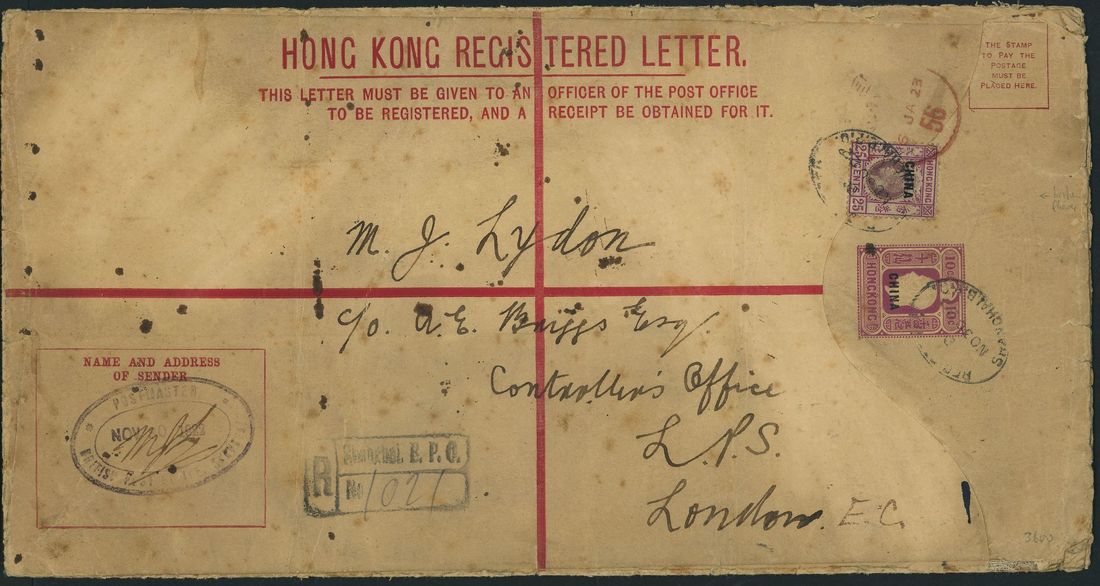 HONG KONG REGISTERED LETTER.
THIS LETTER MUST BE GIVEN TO AN OFFICER OF THE POST OFFICE
TO BE REGISTERED, AND A RECEIPT BE OBTAINED FOR IT.
THE STAMP
TO PAY THE
POSTAGE
MUST BE
PLACED HERE.
JA 23
56
HONGKONG
CHINA
25 CENTS 25
M. J. Lydon
10c
HONGKONG
CHINA
10c
SHANGHAI B.P.O.
NO 30
REG
c/o A. E. Briggs Esq.
Controller's Office
L.P.S.
London. E.C.
NAME AND ADDRESS
OF SENDER
POSTMASTER
NOV 1922
BRITISH POST OFFICE
R
B. P. O.
No 1021
3600